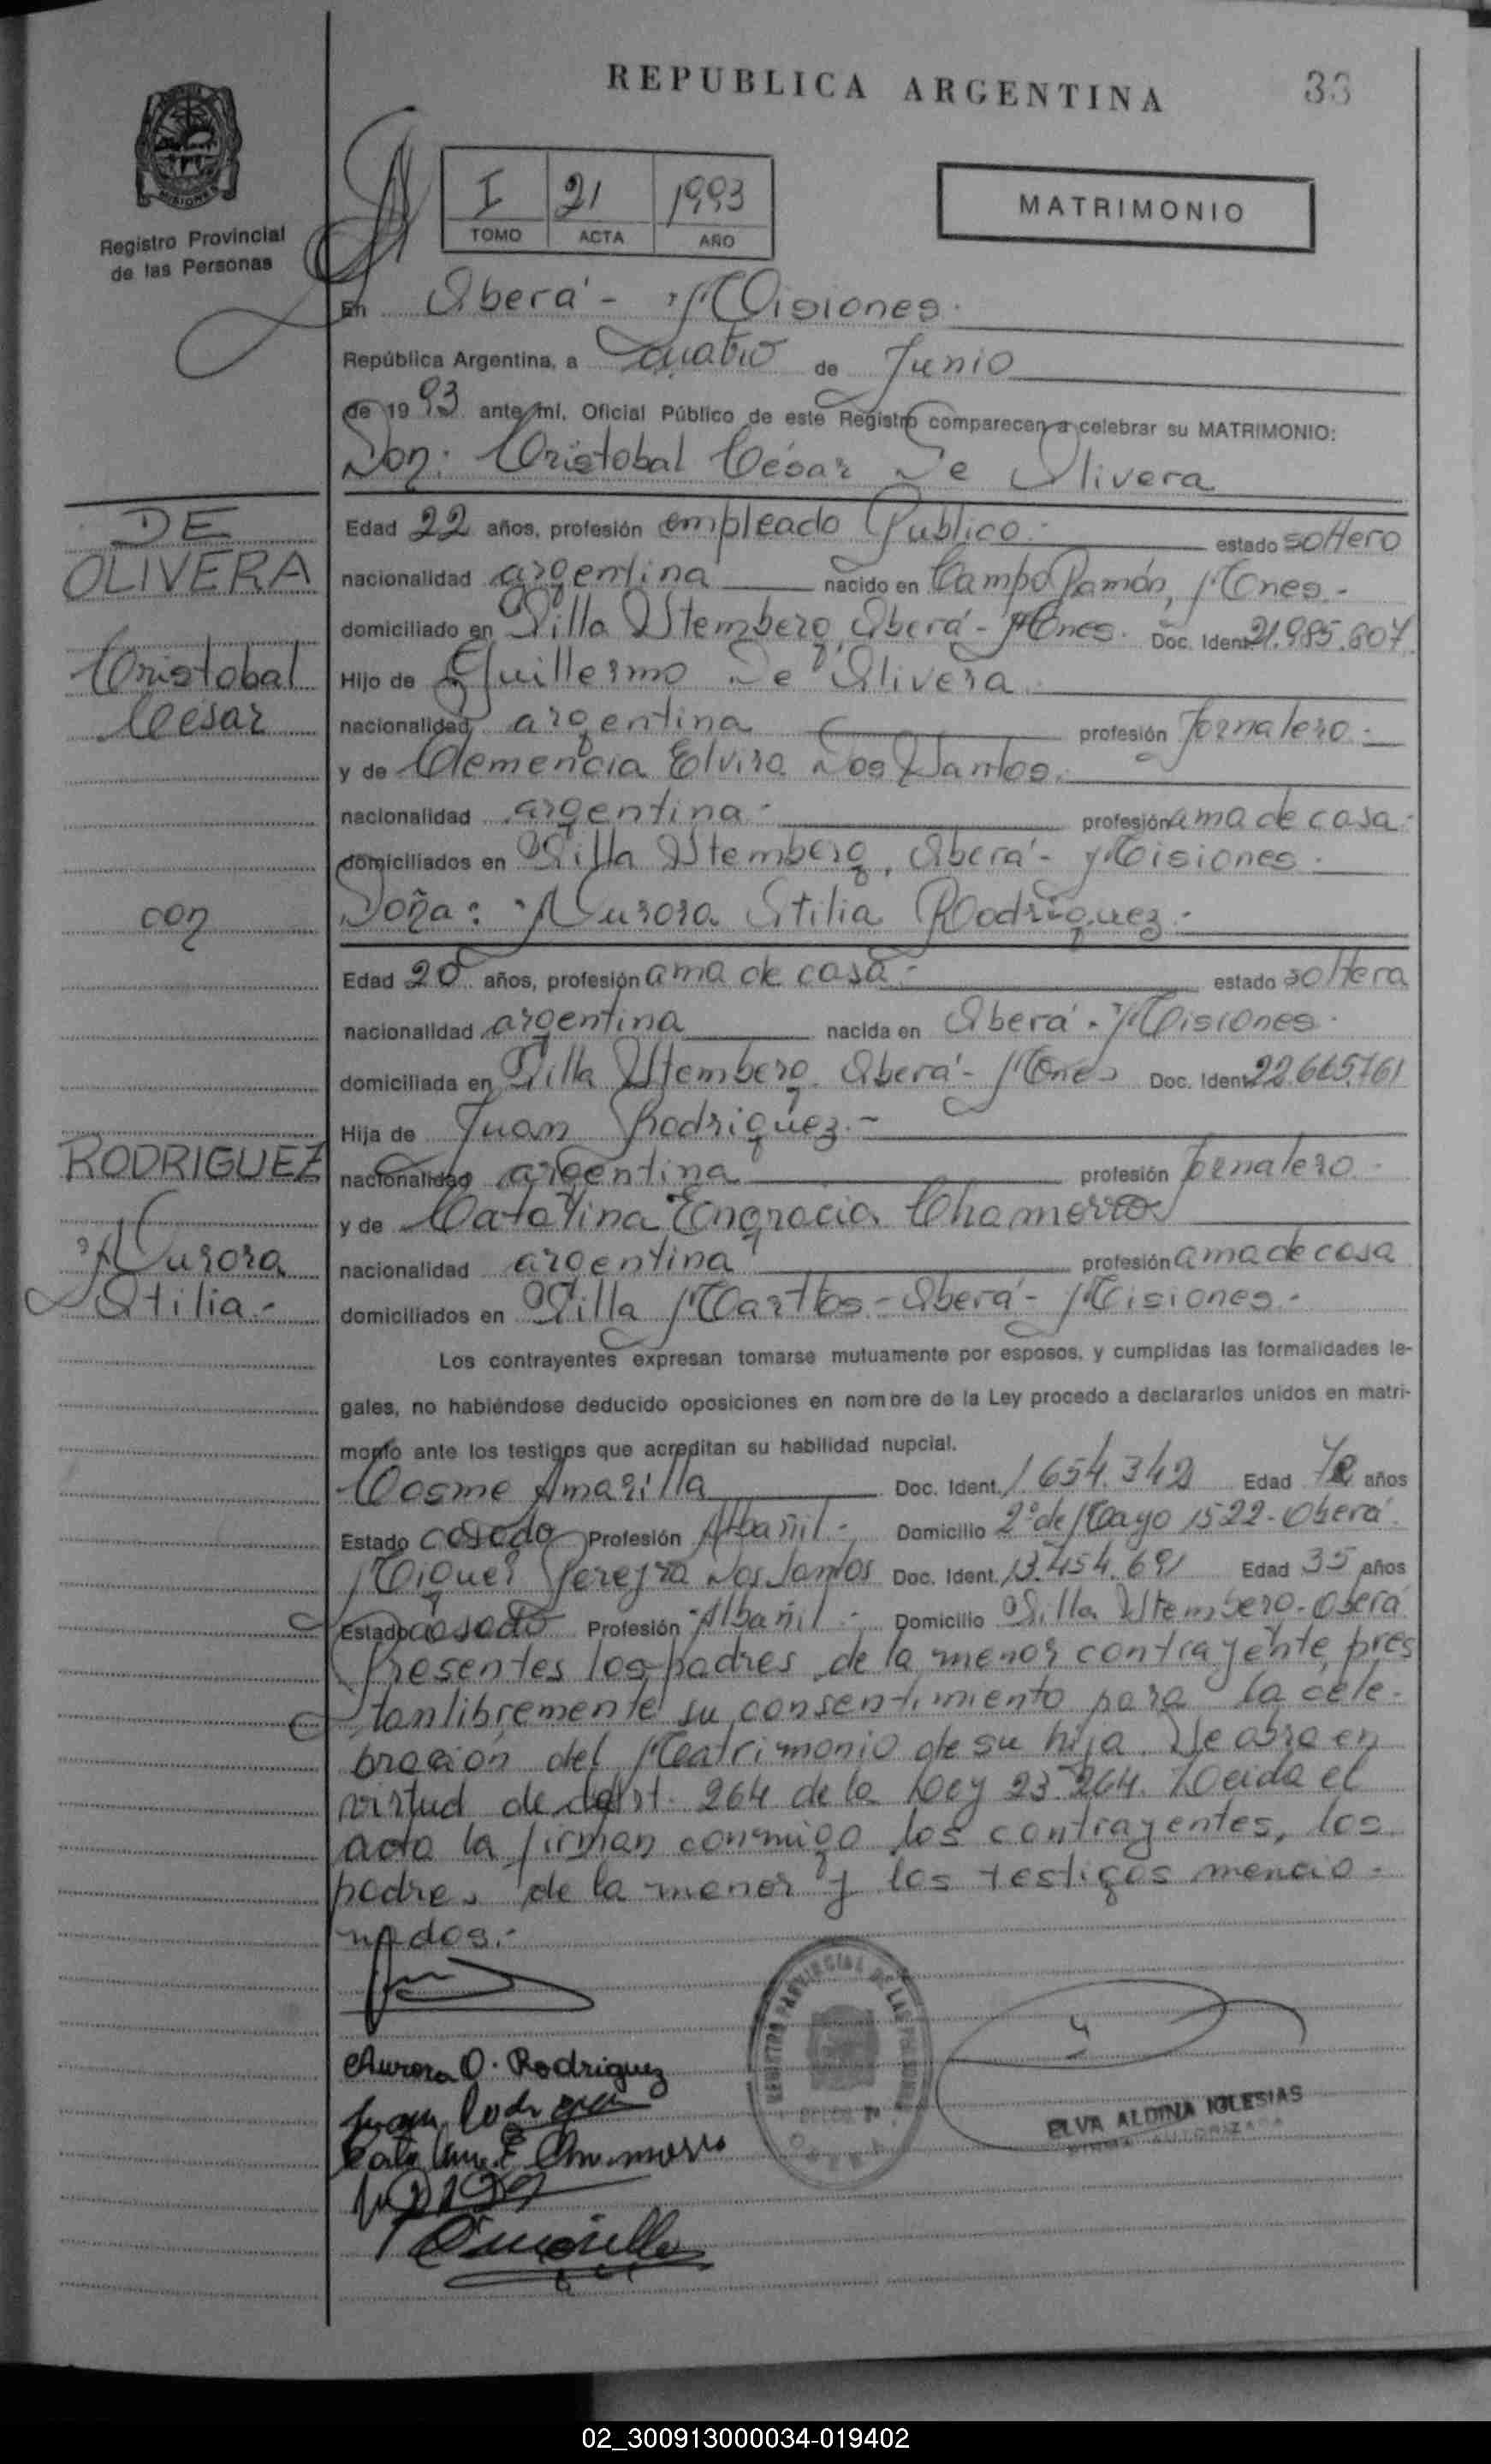 REPUBLICA ARGENTINA
33
MISIONES
Registro Provincial
de las Personas
I 21 1993
TOMO ACTA AÑO
MATRIMONIO
En Oberá - Misiones.
República Argentina, a Cuatro de Junio
de 1993 ante mi, Oficial Público de este Registro comparecen a celebrar su MATRIMONIO:
Don: Cristobal César De Olivera
DE
OLIVERA
Cristobal
César
con
RODRIGUEZ
Aurora
Otilia.-
Edad 22 años, profesión empleado Publico.- estado soltero
nacionalidad argentina nacido en Campo Ramón, Mnes.-
domiciliado en Villa Stemberg, Oberá - Mnes. Doc. Ident. 21.985.807
Hijo de Guillermo De Olivera.
nacionalidad argentina profesión Jornalero.-
y de Clemencia Elvira Dos Santos.
nacionalidad argentina.- profesión ama de casa.
domiciliados en Villa Stemberg, Oberá - Misiones.
Doña: Aurora Otilia Rodriguez.-
Edad 20 años, profesión ama de casa.- estado soltera
nacionalidad argentina nacida en Oberá - Misiones.
domiciliada en Villa Stemberg Oberá - Mnes Doc. Ident. 22.665.761
Hija de Juan Rodriguez.-
nacionalidad argentina profesión Jornalero.-
y de Catalina Engracia Chamorro
nacionalidad argentina profesión ama de casa
domiciliados en Villa - Oberá - Misiones.-
Los contrayentes expresan tomarse mutuamente por esposos, y cumplidas las formalidades le-
gales, no habiéndose deducido oposiciones en nombre de la Ley procedo a declararlos unidos en matri-
monio ante los testigos que acreditan su habilidad nupcial.
Cosme Amarilla Doc. Ident. 1.654.342 Edad años
Estado casado Profesión Albañil.- Domicilio 2º de Mayo 1522 - Oberá
Miguel Pereyra Dos Santos Doc. Ident. 13.454.691 Edad 35 años
Estado casado Profesión Albañil.- Domicilio Villa Stemberg - Oberá
Presentes los padres de la menor contrayente, pres
tan libremente su consentimiento para la cele-
bración del Matrimonio de su hija. Se obra en
virtud de del art. 264 de la Ley 23.264. Leida el
acta la firman conmigo los contrayentes, los
padres de la menor y los testigos mencio-
nados.-
Aurora O. Rodriguez
Juan Rodriguez
Catalina E Chamorro
Amarilla
REGISTRO PROVINCIAL DE LAS PERSONAS
OBERA
ELVA ALDINA IGLESIAS
FIRMA AUTORIZADA
02_300913000034-019402